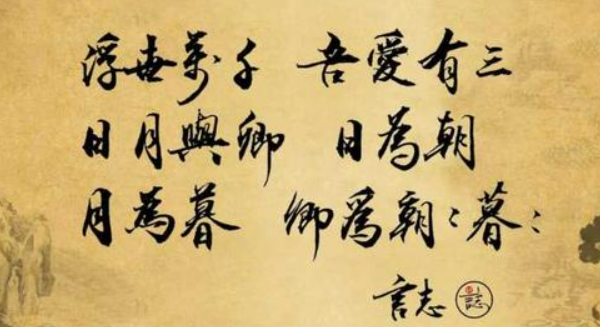 浮世萬千 吾愛有三
日月與卿 日為朝
月為暮 卿爲朝〻暮〻
言志